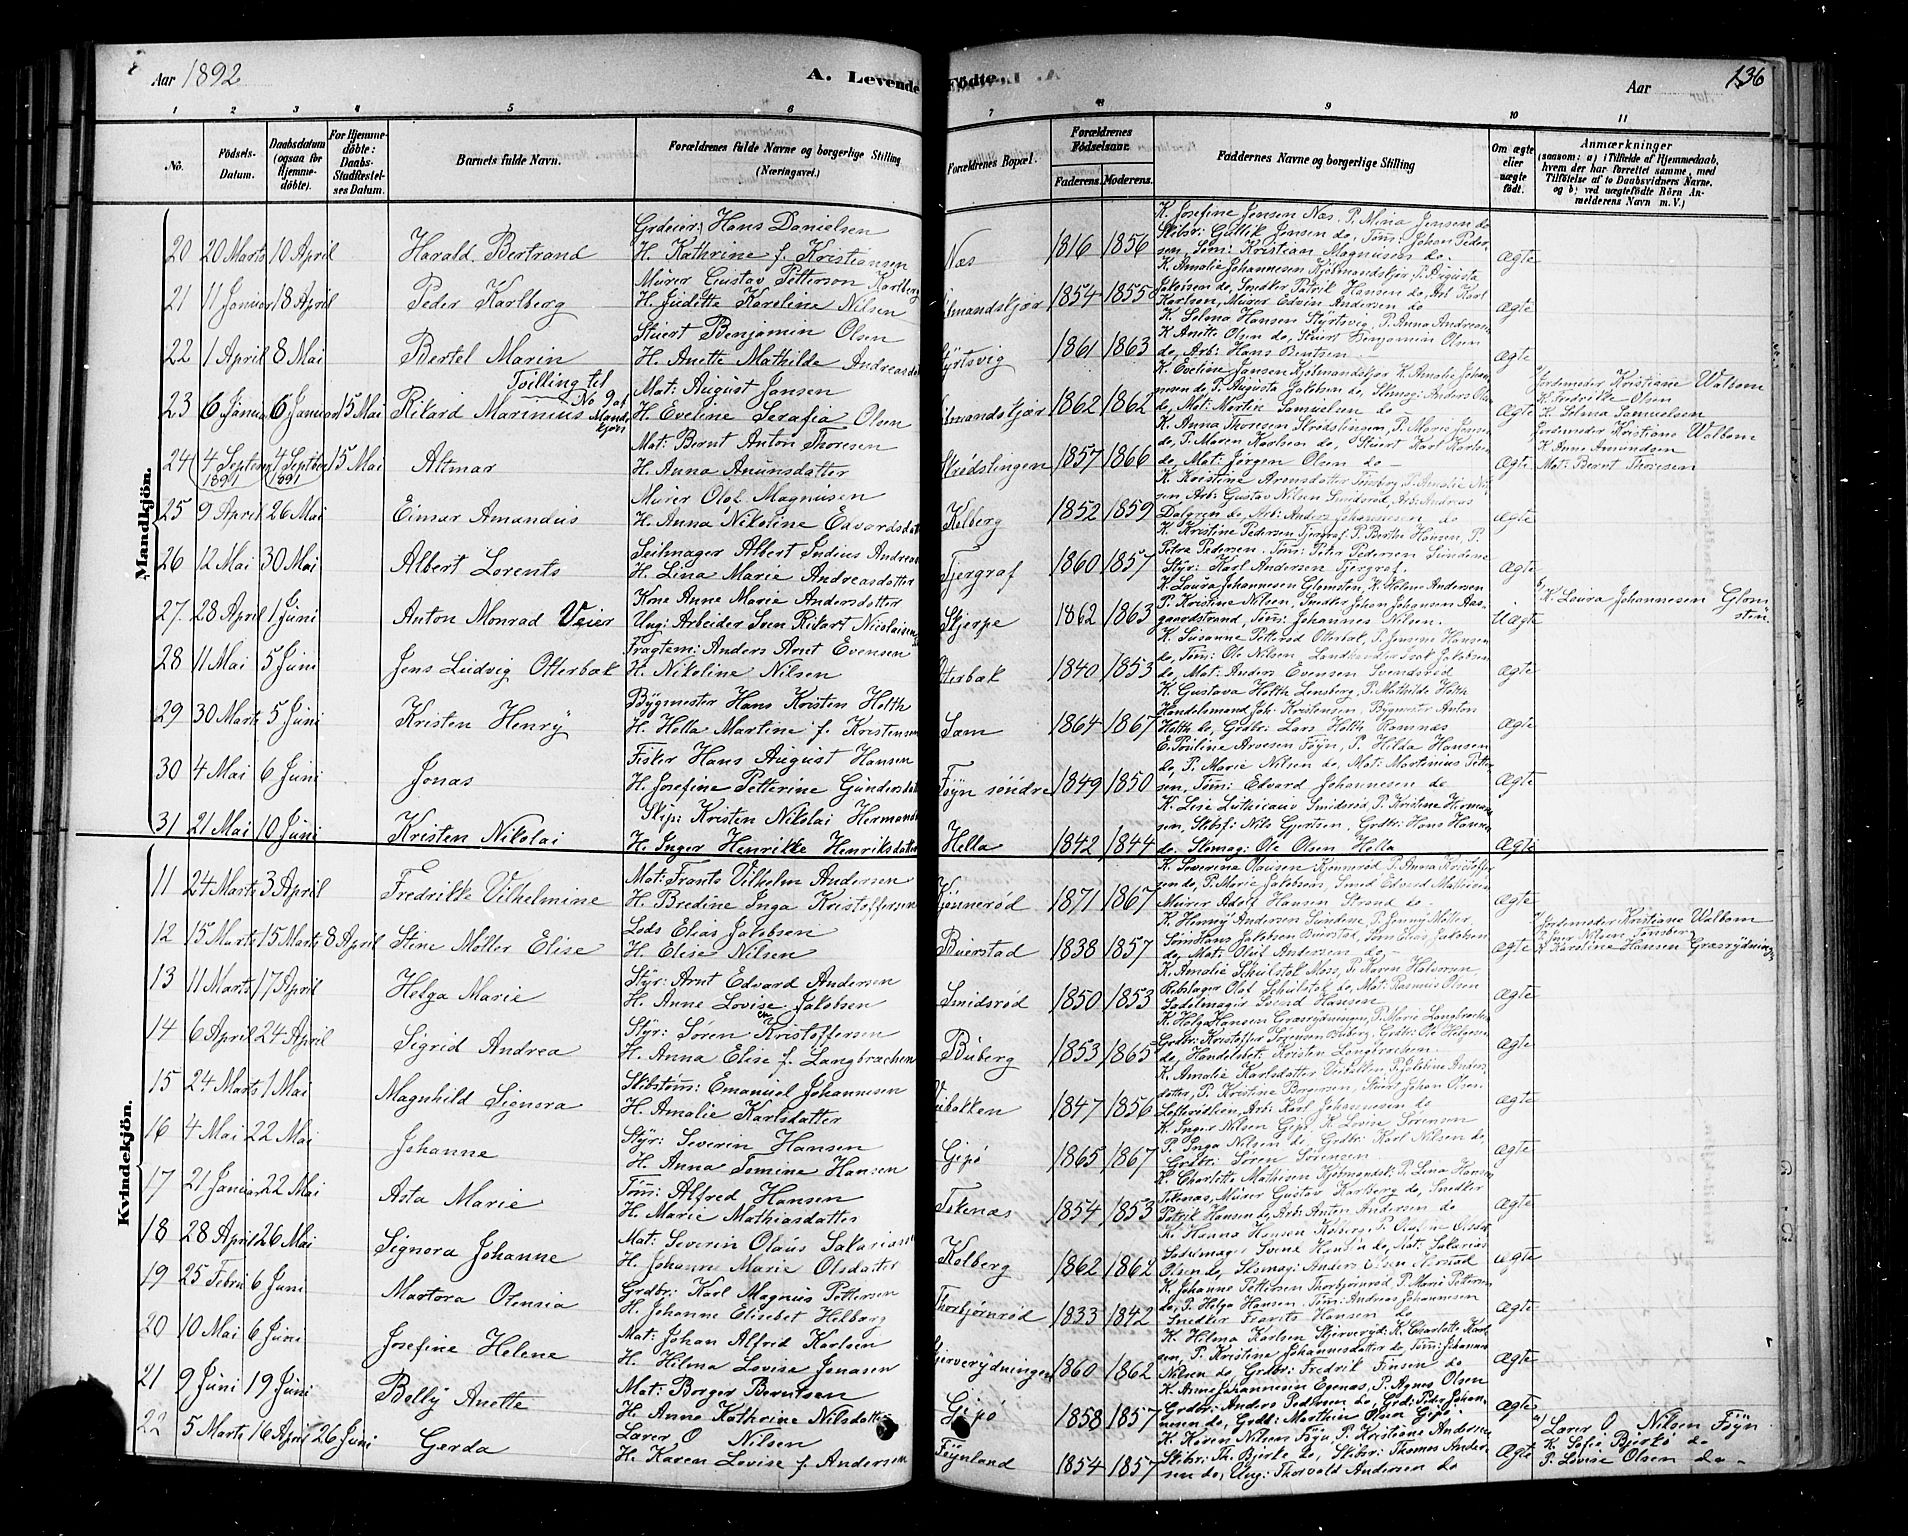 Aar 1892
A. Levende Födte.
Aar
136
1 2 3 4 5 6 7 8 9 10 11
No.
Födsels-Datum.
Daabsdatum (ogsaa for Hjemme-döbte).
For Hjemme-döbte: Daabs-Stadfæstel-ses Datum.
Barnets fulde Navn.
Forældrenes fulde Navne og borgerlige Stilling (Næringsvei.)
Forældrenes Bopæl.
Forældrenes Födselsaar.
Faderens. Moderens.
Faddernes Navne og borgerlige Stilling
Om ægte eller uægte födt.
Anmærkninger
(saasom: a) i Tilfælde af Hjemmedaab,
hvem der har forrettet samme, med
Tilföielse af to Daabsvidners Navne,
og b) ved uægtefödte Börn An-
melderens Navn m. V.)
Mandkjön.
20 20 Marts 10 April Harald Bertrand
Grdeier: Hans Danielsen
H. Kathrine f. Kristiansen
Næs 1816 1856
K. Josefine Jensen Næs, P. Mina Jensen do
Skibsr: Gullik Jensen do, Tøm: Johan Peder-
sen, Tøm: Kristian Magnusen do
Ægte
21 11 Januar 18 April Peder Karlberg
Murer Gustav Petterson Karlberg
H. Judette Kareline Nilsen
1854 1855
K. Amalie Johannesen Kjøbmandskjær, P. Augusta
Jakobsen do, Snedker Patrik Hansen do, Arb Karl
Karlsen, Murer Edvin Andersen do
Ægte
22 1 April 8 Mai Bertel Marin
Stuert Benjamin Olsen
H. Anette Mathilde Andreasdat
1861 1863
K. Selma Hansen Styrtsvig, P. Anna Andreas
K Anette Olsen do, Stuert Benjamin Olsen
do, Arb: Hans Bentsen
Ægte
23 6 Januar 6 Januar 15 Mai Rikard Marinius
Tvilling til No 9 af Mandkjøn
Mat: August Jansen
H. Eveline Serafia Olsen
1862 1862
K Eveline Jansen Kjøbmandskjær K. Amalie Johan-
nesen do P. Augusta Jakobsen do, Skomag: Anders Olsen
do, Mat: Martin Samuelsen do
Ægte
Jordemoder Kristiane Walbom
K. Fredrikke Olsen
K. Selma Samuelsen
24 4 Septem 1891 4 Septber 1891 15 Mai Altmar
Mat: Bernt Anton Thoresen
H. Anna Amundsdatter
Skrødslingen 1857 1866
K. Anna Thoresen Skrødslingen, P. Marie Jensen
do, P. Maren Karlsen do, Stuert Karl Karlsen
do, Mat: Jørgen Olsen do
Ægte
Jordemoder Kristiane Walbom
K. Anne Amundsen
Mat: Bernt Thoresen
25 9 April 26 Mai Einar Amandus
Murer Olaf Magnusen
H. Anna Nikoline Edvardsdat
Kolberg 1852 1859
K. Kristine Arensdatter Tønsberg P. Amalie Nil-
sen, Arb: Gustav Nilsen Smidsrød, Arb: Andreas
Dalgren do, Arb: Anders Johannesen do
Ægte
26 12 Mai 30 Mai Albert Lorents
Seilmager Albert Julius Andreas
H. Lina Marie Andreasdatter
Tjergraf 1860 1857
K. Kristine Pedersen Tjergraf, P. Berthe Hansen, P.
Petra Pedersen, Tøm: Peter Pedersen Sundene
Styr: Karl Andersen Tjergraf.
Ægte
27. 28 April 1 Juni Anton Monrad Veier
Kone Anne Marie Andersdatter
Ung: Arbeider Sven Rikart Nicolaisen
Skjerpe 1862 1863
K. Laura Johannesen Glomsten, K. Helene Andersen
P. Kristine Nilsen, Snedker Johan Johansen Aas-
gaardstrand, Tøm: Johannes Nilsen.
Uægte
b) K. Laura Johannesen Glomsten
28 11 Mai 5 Juni Jens Ludvig Otterbæk
Fragtem: Anders Arnt Evensen
H. Nikoline Nilsen
1840 1853
K. Susanne Petterød Ottestal, P. Jensine Hansen
do, Tøm: Ole Nilsen, Landhandler Isak Jakobsen
do, Mat: Anders Evensen Svendsrød
Ægte
29 30 Marts 5 Juni Kristen Henry
Bygmester Hans Kristen Holth
H. Hella Martine f. Kristensen
Sæm 1864 1867
K. Gustava Holth Lensberg, P. Mathilde Holth
Handelsmand Joh: Kristensen, Bygmester Anton
Holth do, Grdbr: Lars Holth Ramnæs
Ægte
30 4 Mai 6 Juni Jonas
Fisker Hans August Hansen
H. Josefine Petterine Gundersdat
Føyn søndre 1849 1850
E. Pauline Arvesen Føyn, P. Hilda Hansen
do, P. Marie Nilsen do, Mat: Martinius Petter-
sen, Tøm: Edvard Johannesen do
Ægte
31 21 Mai 10 Juni Kristen Nikolai
Skip: Kristen Nikolai Hermans
H. Inger Henrikke Henriksdatter
Hella 1842 1844
K. Lise Smidsrød, P. Kristine Herman-
sen, Skibsf: Nils Gjertsen, Grdbr: Hans Hansen
do, Skomag: Ole Olsen Hella
Ægte
Kvindekjön.
11 24 Marts 3 April Fredrikke Vilhelmine
Mat: Frants Vilhelm Andersen
H. Bredine Inga Kristoffersen
Kjønnerød 1871 1867
K. Severine Olausen Kjønnerød, P. Anna Kristoffer-
sen do, P. Marie Jakobsen, Smed Edvard Mathisen
Murer Adolf Hansen Strand do
Ægte
12 15 Marts 15 Marts 8 April Stine Møller Elise
Lods Elias Jakobsen
H. Elise Nilsen
Buerstad 1838 1857
K. Henny Andersen Sundene, P. Jenny Møller,
Tøm Hans Jakobsen Buerstad, Tøm Elias Jakobsen
do, Mat: Oluf Andersen do
Ægte
Jordemoder Kristiane Walbom
Nilsen Tønsberg
K Karoline Hansen Græsrydningen
13 11 Marts 17 April Helga Marie
Styr: Arnt Edvard Andersen
H. Anne Lovise Jakobsen
Smidsrød 1850 1853
K. Amalie Skulstok Moss, P. Maren Halvorsen,
Rebslager Olaf Skulstok do, Mat: Rasmus Olsen
Sadelmager Svend Hansen
Ægte
14 6 April 24 April Sigrid Andrea
Styr: Søren Kristoffersen
H. Anna Elise f. Langbrachen
Buberg 1853 1865
K. Helga Hansen Græsrydningen, P. Marie Langbrachen
Grdbr: Kristoffer Sørensen Buberg, Grdbr: Ole Helgesen
do, Handelsbet: Kristen Langbrachen
Ægte
15 24 Marts 1 Mai Magnhild Signora
Skibstøm: Emanuel Johannesen
H. Amalie Karlsdatter
1847 1856
K. Amalie Karlsdatter Veibakken, P. Josefine Anders-
datter, P. Kristine Borgersen, Stuert Johan Olsen
Arb: Karl Johannesen do
Ægte
16 4 Mai 22 Mai Johanne
Styr: Severin Hansen
H. Anna Tomine Hansen
Gipø 1865 1867
K. Inger Nilsen Gipø, K. Lovise Sørensen
P. Inga Nilsen do, Grdbr: Karl Nilsen do,
Grdbr: Søren Sørensen
Ægte
17 21 Januar 22 Mai Asta Marie
Tøm: Alfred Hansen
H. Marie Mathiasdatter
Tokenæs 1854 1853
K. Charlotte Mathisen Kjøbmandsk: P. Lina Hansen
Tokenæs, Murer Gustav Karlberg do, Snedker
Patrik Hansen do, Arb: Anton Andersen do
Ægte
18 28 April 26 Mai Signora Johanne
Mat: Severin Olaus Sakarias
H. Johanne Marie Olsdatter
Kolberg 1862 1862
K. Hanna Hansen Kolberg, P. Olufine Olsen
Sadelmager Svend Hansen do, Mat: Sakarias
Olsen do, Skomag: Anders Olsen
Ægte
19 25 Febru 6 Juni Martora Olensia
Grdbr: Karl Magnus Pettersen
H. Johanne Elisebet Helberg
Thorbjørnrød 1833 1842
K. Johanne Pettersen Thorbjørnrød P. Marie Pettersen
do, P. Helga Hansen, Tøm: Andreas Johannesen
Snedker Frants Hansen do
Ægte
20 10 Mai 6 Juni Josefine Helene
Mat: Johan Alfred Karlsen
H. Hilma Lovise Jonasen
1860 1862
K. Helena Karlsen Skjerveryd: K. Charlotte Karl-
sen, P. Kristine Johannesdatter do, Tøm: Johannes
Nilsen do, Grdbr: Fredrik Finsen do
Ægte
21 9 Juni 19 Juni Belly Anette
Mat: Borger Berntsen
H. Anna Kathrine Nilsdatter
Gipø 1858 1857
K. Anne Johannesen Egenæs, P. Agnes Olsen
Grdbr: Anders Pedersen do, Grd: Peder Johan-
nesen do, Grdb: Marthin Olsen Gipø
Ægte
22 5 Marts 16 April 26 Juni Gerda
Lærer O Nilsen
H. Karen Lovise f. Andersen
Føynland 1854 1857
K. Karen Nilsen Føyn P. Kristiane Andersen
Skibr: Th. Bjerkø do, Skibr: Thomas Ander-
sen do, Ung: Thorvald Andersen do
Ægte
a) Lærer O Nilsen Føyn
K. Sofie Bjerkø do
P. Lovise Olsen do